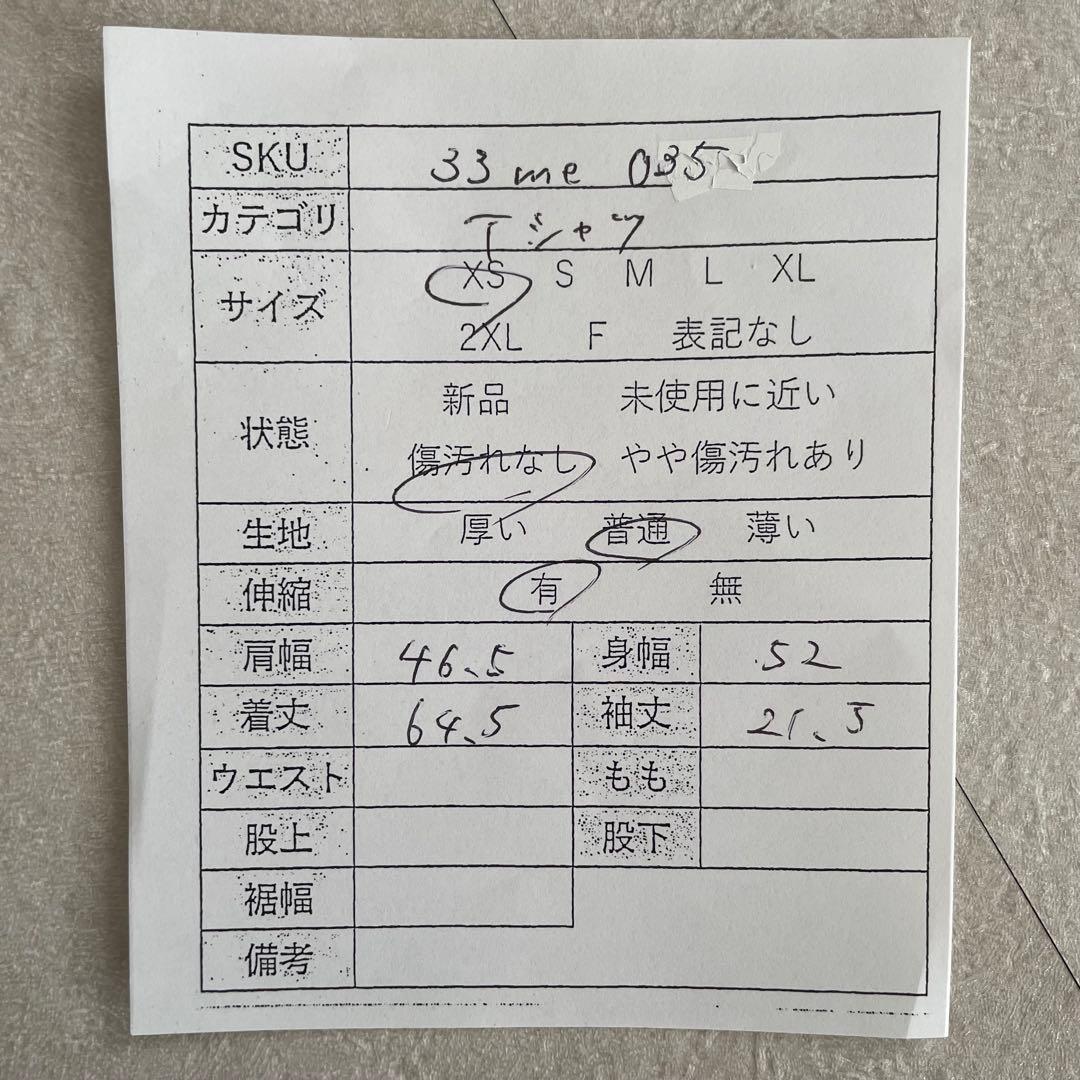 SKU 33 me 035
カテゴリ Tシャツ
サイズ XS S M L XL
2XL F 表記なし
状態 新品 未使用に近い
傷汚れなし やや傷汚れあり
生地 厚い 普通 薄い
伸縮 有 無
肩幅 46.5 身幅 52
着丈 64.5 袖丈 21.5
ウエスト もも
股上 股下
裾幅
備考